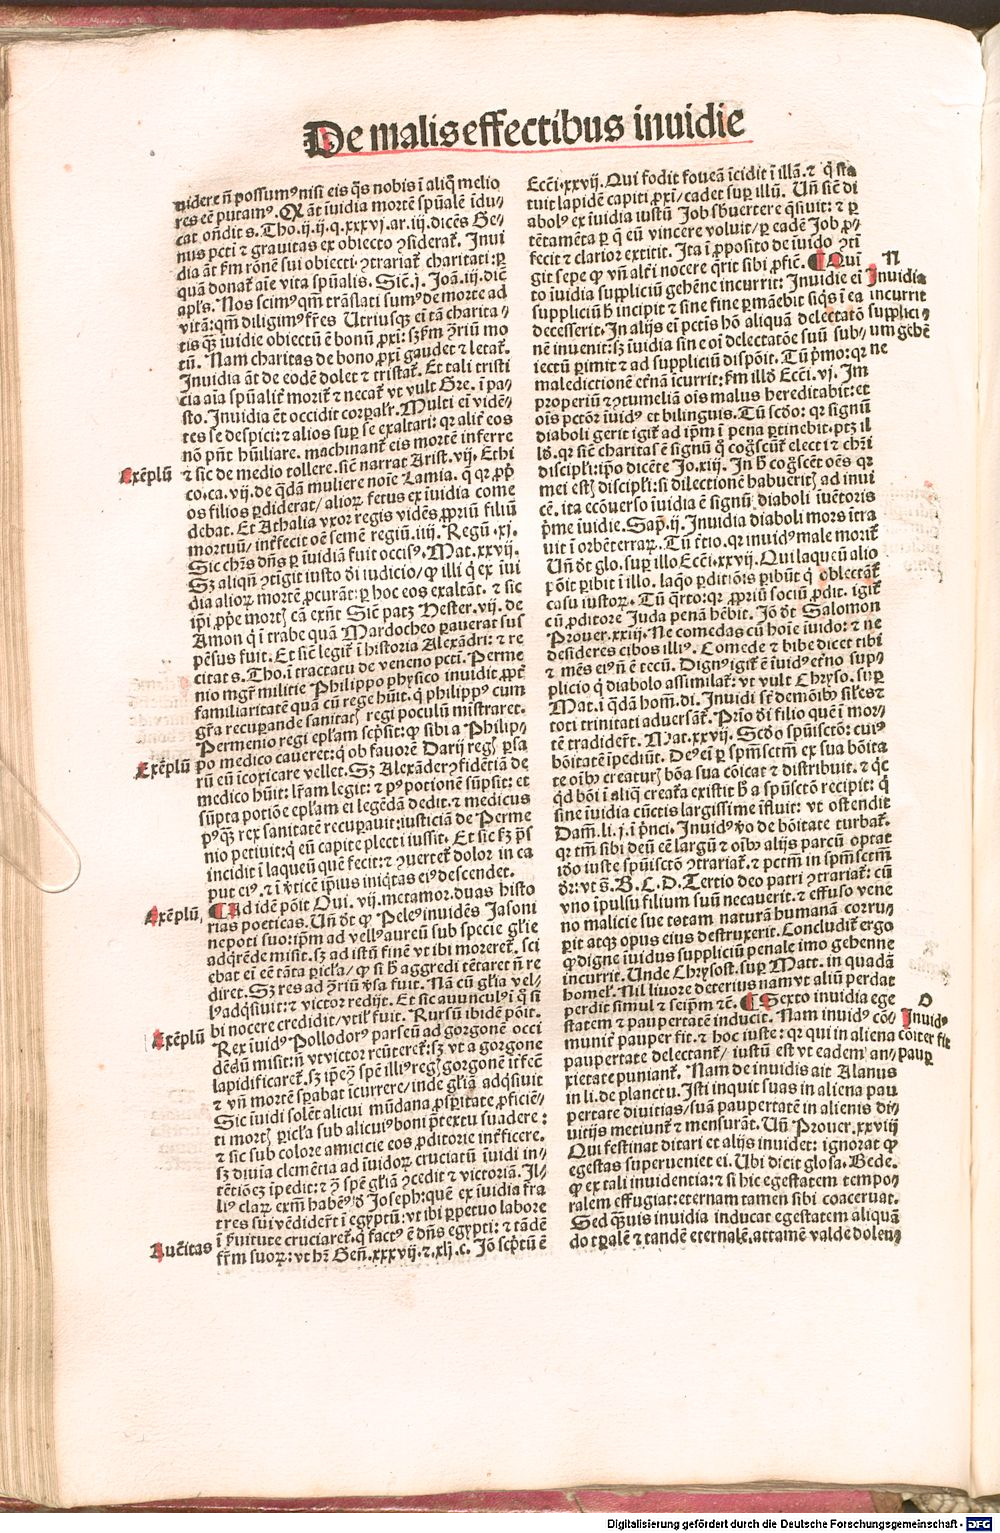 De malis effectibus inuidie
uidere nō possumꝰ nisi eis q̄s nobis ī aliq̊ melio
res eē putamꝰ. Ꝙ āt īuidia mortē sp̄ualē īdu⸗
cat oñdit s. Tho. ij. ij. q. xxxvj. ar. iij. dicēs Ge⸗
nus pcti ⁊ grauitas ex obiecto ꝯsiderat᷑. Inui
dia āt ẜm rōnē sui obiecti ꝯtrariat᷑ charitati: ꝑ
quā donat᷑ aīe vita sp̄ualis. Sic̄. j. Joā. iij. dic̄
apl's. Nos scimꝰ qm̄ trāslati sumꝰ de morte ad
vitā: qm̄ diligimꝰ fr̄es Utriusq̨ eī tā charita⸗
tis q̄ꝫ iuidie obiectū ē bonū ꝓxi: sꝫ ẜm ꝯ̄riū mo
tū. Nam charitas de bono ꝓxi gaudet ⁊ letat᷑.
Inuidia āt de eodē dolet ⁊ tristat᷑. Et tali tristi
cia aīa sp̄ualit᷑ morit᷑ ⁊ necat᷑ vt vult Gre. ī pa⸗
sto. Inuidia ēt occidit corꝑalr̄. Multi eī vidē⸗
tes se despici: ⁊ alios suꝑ se exaltari: qꝛ alit᷑ eos
nō pn̄t hūiliare. machinant᷑ eis mortē inferre
Exēplū
⁊ sic de medio tollere. sic̄ narrat Arist. vij. Ethi
co. ca. vij. de q̄dā muliere noīe Lamia. q̄ qꝛ ꝓp̄
os filios ꝑdiderat/ alioꝝ fetus ex īuidia come
debat. Et Athalia vxor regis vidēs ꝓpriū filiū
mortuū/ int᷑fecit oē semē regiū. iiij. Regū. xj.
Sic chr̄s dn̄s ꝑ īuidiā fuit occisꝰ. Mat. xxvij.
Sꝫ aliqn̄ ꝯtigit iusto dī iudicio/ ꝙ illi q̄ ex īui
dia alioꝝ mortē ꝓcurāt: ꝑ hoc eos exaltāt. ⁊ sic
ip̄i ꝓp̄e mortꝭ cā exn̄t Sic̄ patꝫ Hester. vij. de
Amon q̄ ī trabe quā Mardocheo ꝑauerat sus
pēsus fuit. Et sic̄ legit᷑ ī historia Alexādri: ⁊ re
citat s. Tho. ī tractatu de veneno pcti. Perme
nio mgr̄ militie Philippo physico inuidit ꝓpt᷑
familiaritatē quā cū rege hūit. q̄ philippꝰ cum
gr̄a recuꝑande sanitatꝭ regi poculū mīstraret.
Permenio regi epl'am scpsit: ꝙ sibi a Philip⸗
Exēplū
po medico caueret: q̄ ob fauorē Darij regꝭ ꝑsa
rū eū ītoxicare vellet. Sꝫ Alexāder ꝯfidētiā de
medico hūit: lr̄am legit: ⁊ pꝰ potionē sūpsit: et
sūpta potiōe epl'am ei legēdā dedit. ⁊ medicus
pꝰq̄ꝫ rex sanitatē recuꝑauit: iusticiā de Perme
nio petiuit: q̄ eū capite plecti iussit. Et sic fꝫ p̄s
incidit ī laqueū quē fecit: ⁊ ꝯuertet᷑ dolor in ca
put eiꝰ. ⁊ ī v̓ticē ip̄ius iniq̄tas eiꝰ descendet.
Exēplū.
¶ Ad idē pōit Oui. vij. metamor. duas histo
rias poeticas. Un̄ dt̄ ꝙ Peleꝰ inuidēs Jasoni
nepoti suo: ip̄m ad vellꝰ aureū sub specie gl'ie
adq̄rēde misit. sꝫ ad istū finē vt ibi moreret᷑. sci
ebat eī eē tāta ꝑicl'a/ ꝙ si h̄ aggredi tētaret nō re
diret. Sꝫ res ad ꝯ̄riū v̓sa fuit. Nā cū gl'ia vel⸗
lꝰ adq̄siuit: ⁊ victor redijt. Et sic auunculꝰ ī q̊ si
bi nocere credidit/ vtil' fuit. Rursū ibidē pōit.
Exēplū
Rex īuidꝰ Pollodorꝰ parseū ad gorgonē occi
dēdū misit: nō vt victor reūteret᷑: sꝫ vt a gorgone
lapidificaret᷑. sꝫ ip̄e ꝯ spē illiꝰ regꝭ gorgonē īt᷑fec̄
⁊ vn̄ mortē spabat īcurrere/ inde gl'iā adq̄siuit
Sic īuidi solēt alicui mūdana ꝓsꝑitate ꝓficiē⸗
ti mortꝭ ꝑicl'a sub alicuiꝰ boni p̄textu suadere:
⁊ sic sub colore amicicie eos ꝓditorie int᷑ficere.
sꝫ diuīa clemētia ad īuidoꝝ cruciatū īuidi in⸗
tētiōeꝫ īpedit: ⁊ ꝯ spē gl'iā ꝯcedit ⁊ victoriā. Il⸗
liꝰ claꝝ exm̄ habēꝰ d̓ Joseph: quē ex īuidia fra
tres sui vēdider̄t ī egyptū: vt ibi ꝑpetuo labore
ī s̓uitute cruciaret᷑. q̄ factꝰ ē dn̄s egypti: ⁊ tādē
Auctītas
fr̄m suoꝝ: vt hr̄ Gen̄. xxxvij. ⁊. xlj. c. Jō scp̄tū ē
Ecc̄i. xxvij. Qui fodit foueā īcidit ī illā. ⁊ q̄ sta
tuit lapidē capiti ꝓxi/ cadet suꝑ illū. Un̄ sic̄ di
abolꝰ ex īuidia iustū Job sb̓uertere q̄siuit: ⁊ ꝑ
tētamēta ꝑ q̄ eū vincere voluit/ ꝑ eadē Job ꝓ⸗
fecit ⁊ clarior extitit. Ita ī ꝓposito de īuido ꝯti
git sepe ꝙ vn̄ alt᷑i nocere q̄rit sibi ꝓfic̄. ¶ Quī
N
Inuidia
incurrit
supplici⸗
um gehē
ne
to īuidia suppliciū gehēne incurrit: Inuidie eī
suppliciū h̄ incipit ⁊ sine fine ꝑmanēbit siq̄s ī ea
decesserit. In alijs eī pctis hō aliquā delectatō
nē inuenit: sꝫ īuidia sin e oī delectatōe suū sub⸗
iectū ꝑimit ⁊ ad suppliciū dispōit. Tū pͥmo: qꝛ
maledictionē et᷑nā īcurrit: ẜm illd̓ Ecc̄i. vj. Im
properiū ⁊ ꝯtumeliā oīs malus hereditabit: et
oīs pctōr īuidꝰ et bilinguis. Tū scd̓o: qꝛ signū
diaboli gerit igit᷑ ad ip̄m ī pena ꝑtinebit. ptꝫ il
lđ. qꝛ sic̄ charitas ē signū q̊ cog̊scūt᷑ electi ⁊ chr̄i
discipl'i: ip̄o dicēte Jo. xiij. In h̄ cog̊scēt oēs qꝛ
mei estꝭ discipl'i: si dilectionē habueritꝭ ad inui
cē. ita ecōuerso īuidia ē signū diaboli īuētoris
pͥme īuidie. Sap̄. ij. Inuidia diaboli mors ītra
uit ī orbē terraꝝ. Tū t̓tio. qꝛ inuidꝰ male morit᷑
Un̄ dt̄ glo. suꝑ illo Ecc̄i. xxvij. Qui laqueū alio
pōit ꝑibit ī illo. laq̊o ꝑditiōis ꝑibūt q̄ oblectāt᷑
casu iustoꝝ. Tū q̄rto: qꝛ ꝓpriū sociū ꝓdit. igit᷑
cū ꝓditore Juda penā hēbit. Jō dt̄ Salomon
Prouer. xxiij. Ne comedas cū hoīe īuido: ⁊ ne
desideres cibos illiꝰ. Comede ⁊ bibe dicet tibi
⁊ mēs eiꝰ nō ē tecū. Dignꝰ igit᷑ ē īuidꝰ et᷑no sup⸗
plicio q̄ diabolo assimilat᷑: vt vult Chryso. suꝑ
Mat. ī q̄dā hom̄. di. Inuidi sē demōibꝰ sil'es ⁊
toti trinitati aduersāt᷑. Prīo dī filio quē ī mor⸗
tē tradider̄t. Mat. xxvij. Scd̓o sp̄uisctō: cuiꝰ
bōitatē īpediūt. Deꝰ eī ꝑ sp̄m̄sctm̄ ex sua bōita
te oībꝰ creaturꝭ bōa sua cōicat ⁊ distribuit. ⁊ q̄c
q̄d bōi ī aliq̄ creat᷑a existit h̄ a sp̄usctō recipit: q̄
sine īuidia cūctis largissime īfluit: vt ostendit
Dam̄. li. j. ī pͥnci. Inuidꝰ v̓o de bōitate turbat᷑.
qꝛ tm̄ sibi deū eē largū ⁊ oībꝰ alijs parcū optat
iđo iuste sp̄uisctō ꝯtrariat᷑. ⁊ pctm̄ in sp̄m̄sctm̄
dr̄: vt s̄. B. C. D. Tertio deo patri ꝯtrariat᷑: cū
vno īpulsu filium suū necauerit. ⁊ effuso vene
no malicie sue totam naturā humanā corru⸗
ꝑit atq̨ opus eius destruxerit. Concludit᷑ ergo
ꝙ digne īuidus suppliciū penale imo gehenne
incurrit. Unde Chrysost. suꝑ Matt. in quadā
homel'. Nil liuore deterius nam vt aliū perdat
perdit simul ⁊ seip̄m ⁊c̄. ¶ Sexto inuidia ege
O
Inuidꝰ
cōiter fit
pauꝑ
statem ⁊ paupertatē inducit. Nam inuidꝰ cō⸗
munit᷑ pauper fit. ⁊ hoc iuste: qꝛ qui in aliena
paupertate delectant᷑/ iustū est vt eadem an⸗
xietate puniant᷑. Nam de inuidis ait Alanus
in li. de planctu. Isti inquit suas in aliena pau
pertate diuitias/ suā paupertatē in alienis di⸗
uitijs metiunt᷑ ⁊ mensurāt. Un̄ Prouer. xxviij
Qui festinat ditari et alijs inuidet: ignorat ꝙ
egestas superueniet ei. Ubi dicit glosa. Bede.
ꝙ ex tali inuidentia: ⁊ si hic egestatem tempo⸗
ralem effugiat: eternam tamen sibi coaceruat.
Sed q̄ꝫuis inuidia inducat egestatem aliquā
do tꝑalē ⁊ tandē eternalē. attamē valde dolen⸗
Digitalisierung gefördert durch die Deutsche Forschungsgemeinschaft - DFG